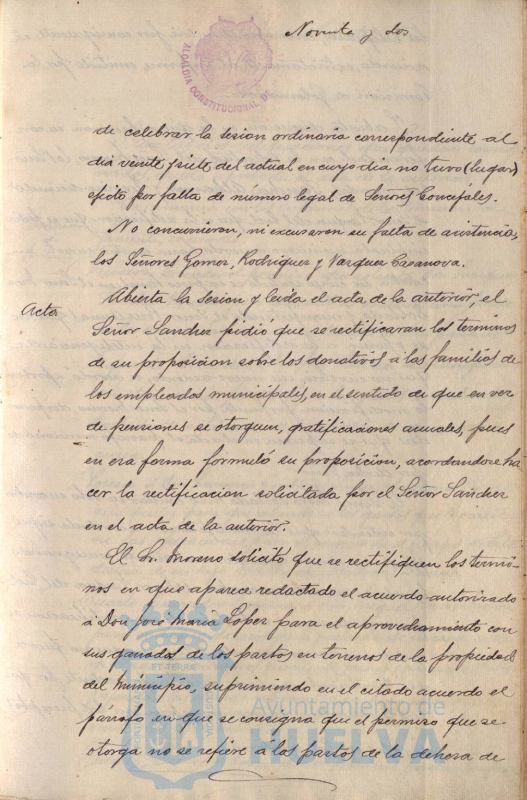 Noventa y dos
ALCALDIA CONSTITUCIONAL DE
de celebrar la sesion ordinaria correspondiente al
dia veinte y siete del actual en cuyo dia no tuvo (lugar)
efecto por falta de número legal de Señores Concejales.
No concurrieron, ni excusaron su falta de asistencia,
los Señores Gomez, Rodriguez y Vazquez Casanova.
Acta
Abierta la sesion y leida el acta de la anterior, el
Señor Sanchez pidió que se rectificaran los terminos
de su proposicion sobre los donativos á las familias de
los empleados municipales, en el sentido de que en vez
de pensiones se otorguen, gratificaciones anuales, pues
en esa forma formuló su proposicion, acordandose ha
cer la rectificacion solicitada por el Señor Sanchez
en el acta de la anterior.
El Sr. Moreno solicitó que se rectifiquen los termi-
nos en que aparece redactado el acuerdo autorizado
á Don José Maria Lopez para el aprovechamiento con
sus ganados de los pastos en terrenos de la propiedad
del Municipio, suprimiendo en el citado acuerdo el
párrafo en que se consigna que el permiso que se
otorga no se refiere á los pastos de la dehesa de
Ayuntamiento de
HUELVA